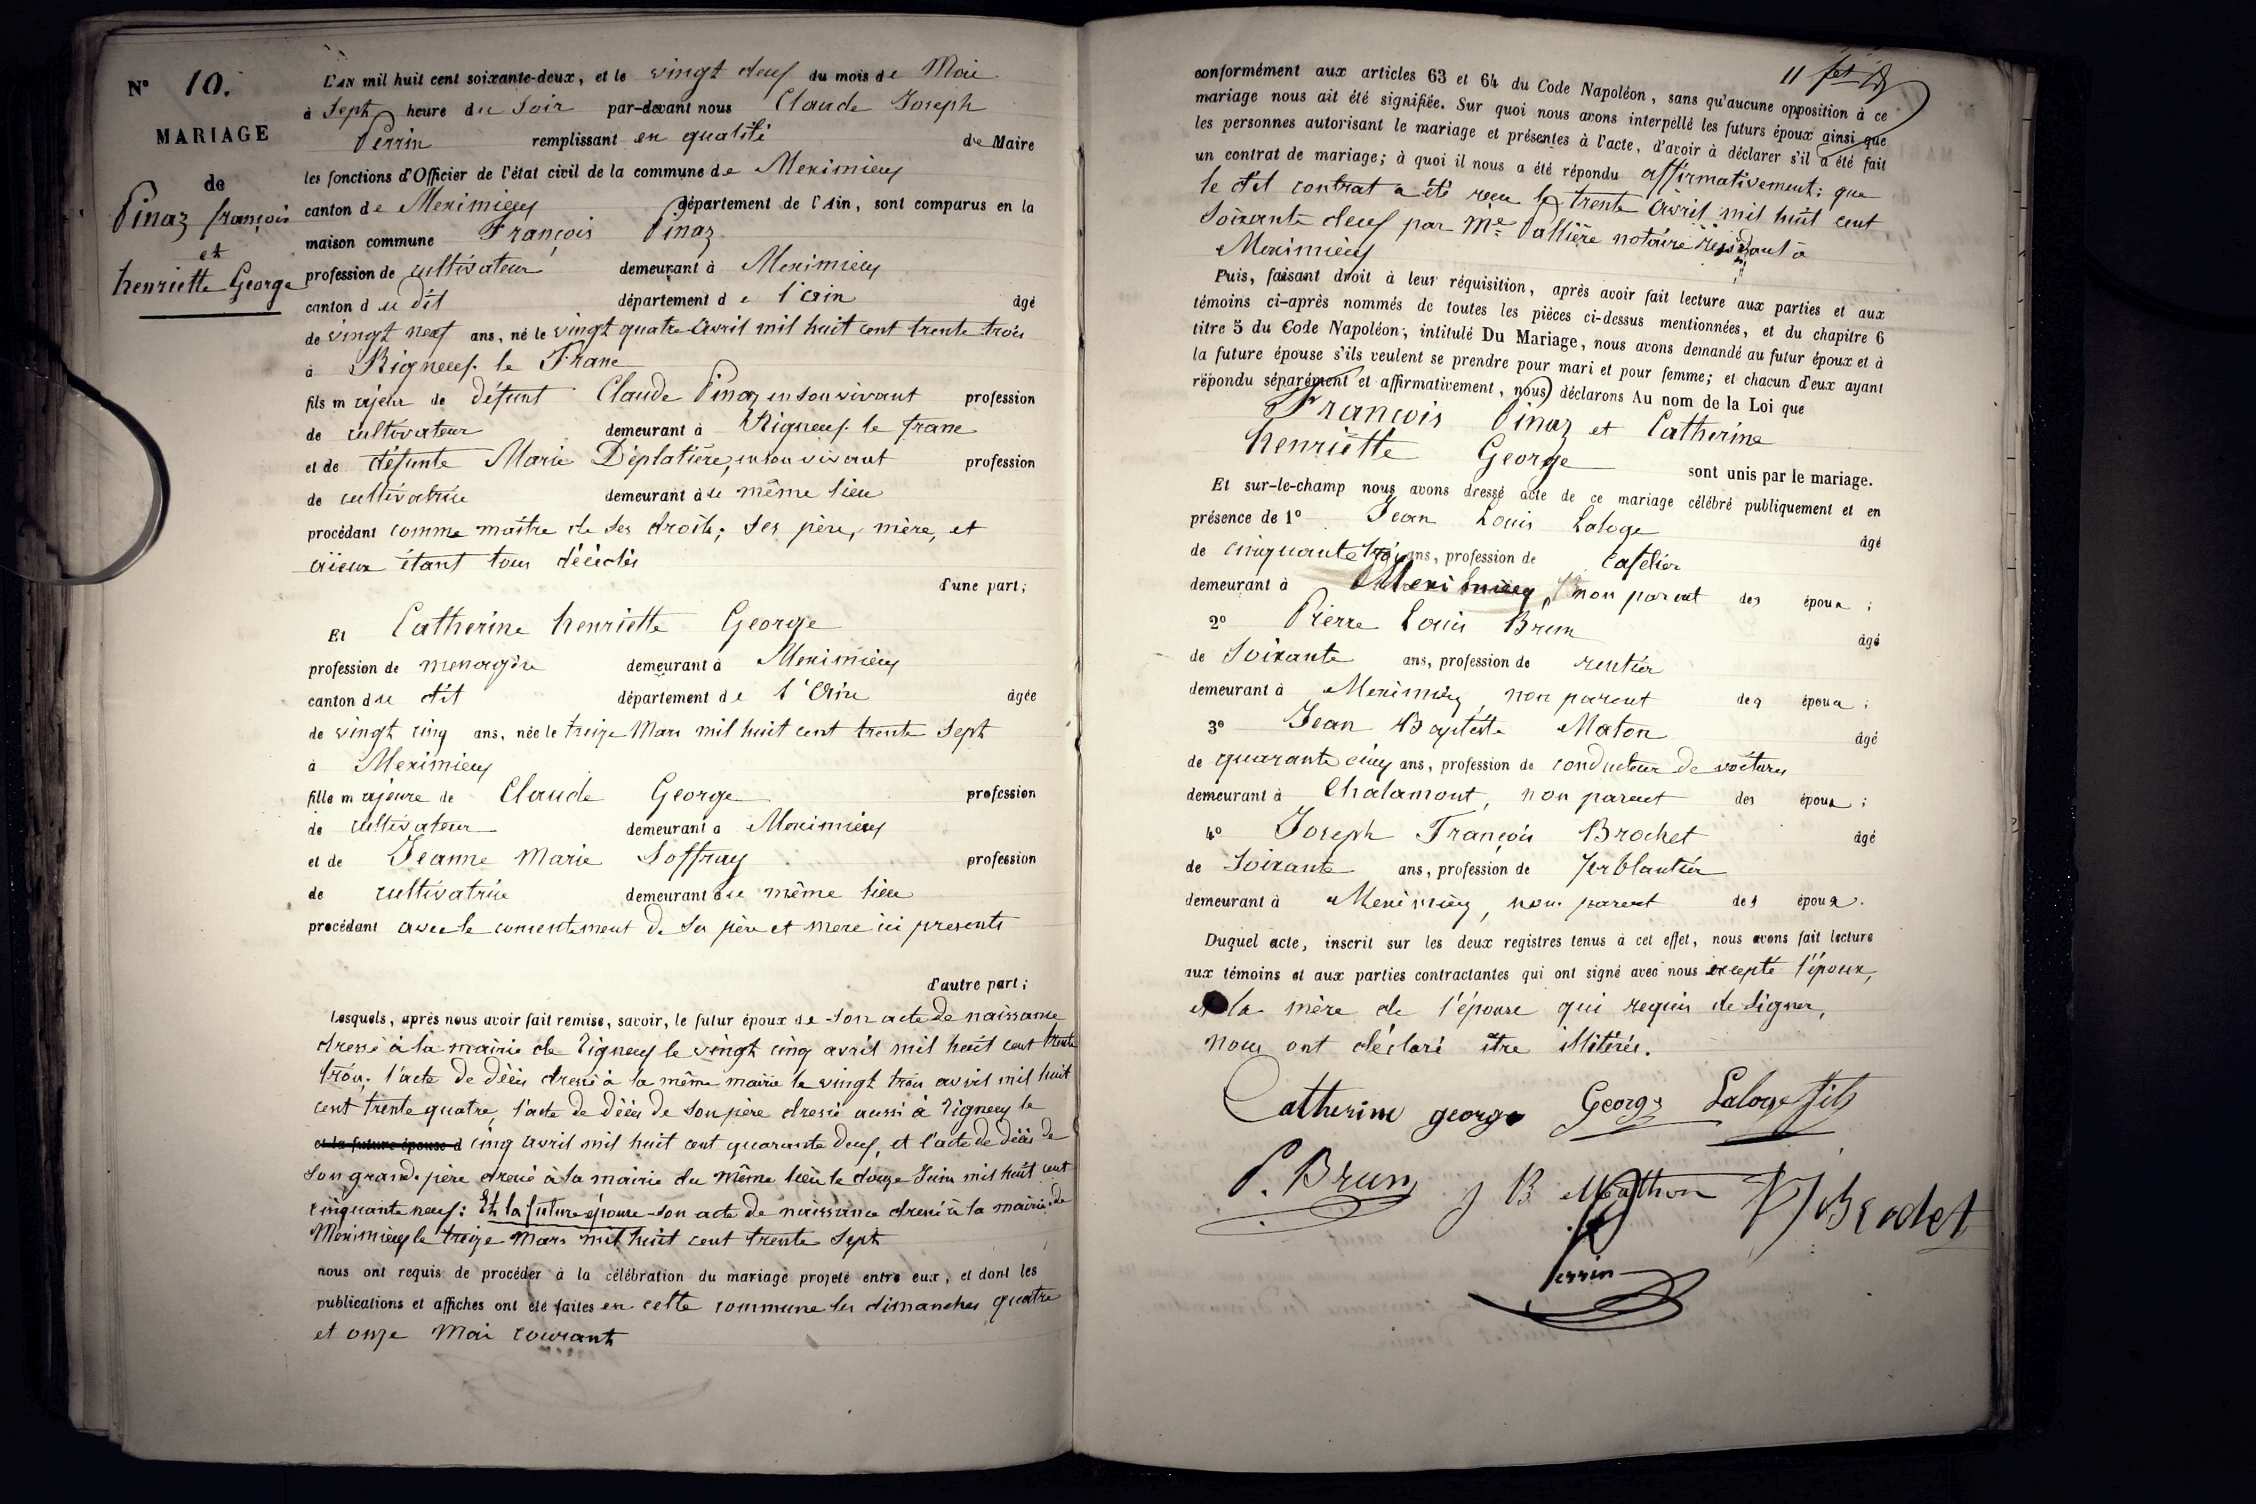 N° 10.
MARIAGE
de
Pinaz françois
et
henriette George
L'AN mil huit cent soixante-deux, et le vingt deux du mois de Mai
à Sept heure du Soir par-devant nous Claude Joseph
Perrin remplissant en qualité de Maire
les fonctions d'Officier de l'état civil de la commune de Meximieux
canton de Meximieux département de l'Ain, sont comparus en la
maison commune François Pinaz
profession de cultivateur demeurant à Meximieux
canton du dit département de l'Ain âgé
de vingt neuf ans, né le vingt quatre avril mil huit cent trente trois
à Rigneux le Franc
fils majeur de défunt Claude Pinaz en son vivant profession
de cultivateur demeurant à Rigneux le franc
et de défunte Marie Déplatière, en son vivant profession
de cultivatrice demeurant au même lieu
procédant comme maître de ses droits; ses père, mère, et
aïeux étant tous décédés
d'une part;
Et Catherine henriette George
profession de menagère demeurant à Meximieux
canton du dit département de l'Ain âgée
de vingt cinq ans, née le treize Mars mil huit cent trente Sept
à Meximieux
fille majeure de Claude George profession
de cultivateur demeurant à Meximieux
et de Jeanne Marie Soffray profession
de cultivatrice demeurant au même lieu
procédant avec le consentement de ses père et mere ici presents
d'autre part;
Lesquels, après nous avoir fait remise, savoir, le futur époux de son acte de naissance
dressé à la mairie de Rigneux le vingt cinq avril mil huit cent trente
trois, l'acte de décès dressé à la même mairie le vingt trois avril mil huit
cent trente quatre, l'acte de décès de son père dressé aussi à Rigneux le
et la future épouse d cinq avril mil huit cent quarante deux, et l'acte de décès de
son grand-père dressé à la mairie du même lieu le douze Juin mil huit cent
cinquante neuf: Et la future épouse son acte de naissance dressé à la mairie de
Meximieux le treize Mars mil huit cent trente Sept
nous ont requis de procéder à la célébration du mariage projeté entre eux, et dont les
publications et affiches ont été faites en cette commune les dimanches quatre
et onze Mai courant
11
conformément aux articles 63 et 64 du Code Napoléon, sans qu'aucune opposition à ce
mariage nous ait été signifiée. Sur quoi nous avons interpellé les futurs époux ainsi que
les personnes autorisant le mariage et présentes à l'acte, d'avoir à déclarer s'il a été fait
un contrat de mariage; à quoi il nous a été répondu affirmativement: que
le dit contrat a été reçu le trente Avril mil huit cent
soixante deux par Me Pallière notaire résidant à
Meximieux
Puis, faisant droit à leur réquisition, après avoir fait lecture aux parties et aux
témoins ci-après nommés de toutes les pièces ci-dessus mentionnées, et du chapitre 6
titre 5 du Code Napoléon, intitulé Du Mariage, nous avons demandé au futur époux et à
la future épouse s'ils veulent se prendre pour mari et pour femme; et chacun d'eux ayant
répondu séparément et affirmativement, nous déclarons Au nom de la Loi que
François Pinaz et Catherine
henriette George sont unis par le mariage.
Et sur-le-champ nous avons dressé acte de ce mariage célébré publiquement et en
présence de 1° Jean Louis Laloge âgé
de cinquante trois ans, profession de cafetier
demeurant à Meximieux, non parent des époux;
2° Pierre Louis Brun âgé
de Soixante ans, profession de rentier
demeurant à Meximieux, non parent des époux;
3° Jean Baptiste Maton âgé
de quarante cinq ans, profession de conducteur de voitures
demeurant à Chalamont, non parent des époux;
4° Joseph François Brochet âgé
de Soixante ans, profession de ferblantier
demeurant à Meximieux, non parent des époux.
Duquel acte, inscrit sur les deux registres tenus à cet effet, nous avons fait lecture
aux témoins et aux parties contractantes qui ont signé avec nous excepté l'époux,
et la mère de l'épouse qui requis de signer,
nous ont déclaré être illitérés.
Catherine george George Laloge fils
P. Brun J B Mathon Brochet
Perrin